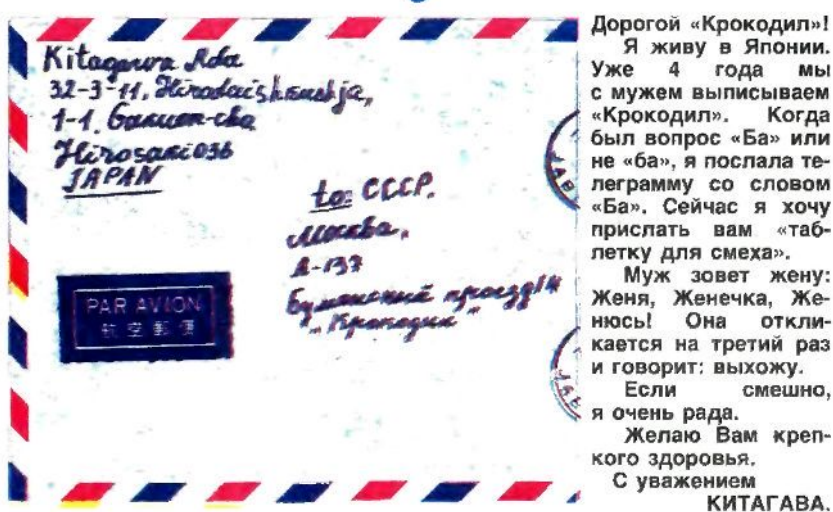 Kitagawa Ada
32-3-11,
1-1, Gakuen-cho
Hirosaki 036
JAPAN
to: СССР.
Москва,
А-137
Бумажный проезд 14
"Крокодил"
PAR AVION
航空郵便
JAP
JAP
Дорогой «Крокодил»!
Я живу в Японии.
Уже 4 года мы
с мужем выписываем
«Крокодил». Когда
был вопрос «Ба» или
не «ба», я послала те-
леграмму со словом
«Ба». Сейчас я хочу
прислать вам «таб-
летку для смеха».
Муж зовет жену:
Женя, Женечка, Же-
нюсь! Она откли-
кается на третий раз
и говорит: выхожу.
Если смешно,
я очень рада.
Желаю Вам креп-
кого здоровья.
С уважением
КИТАГАВА.